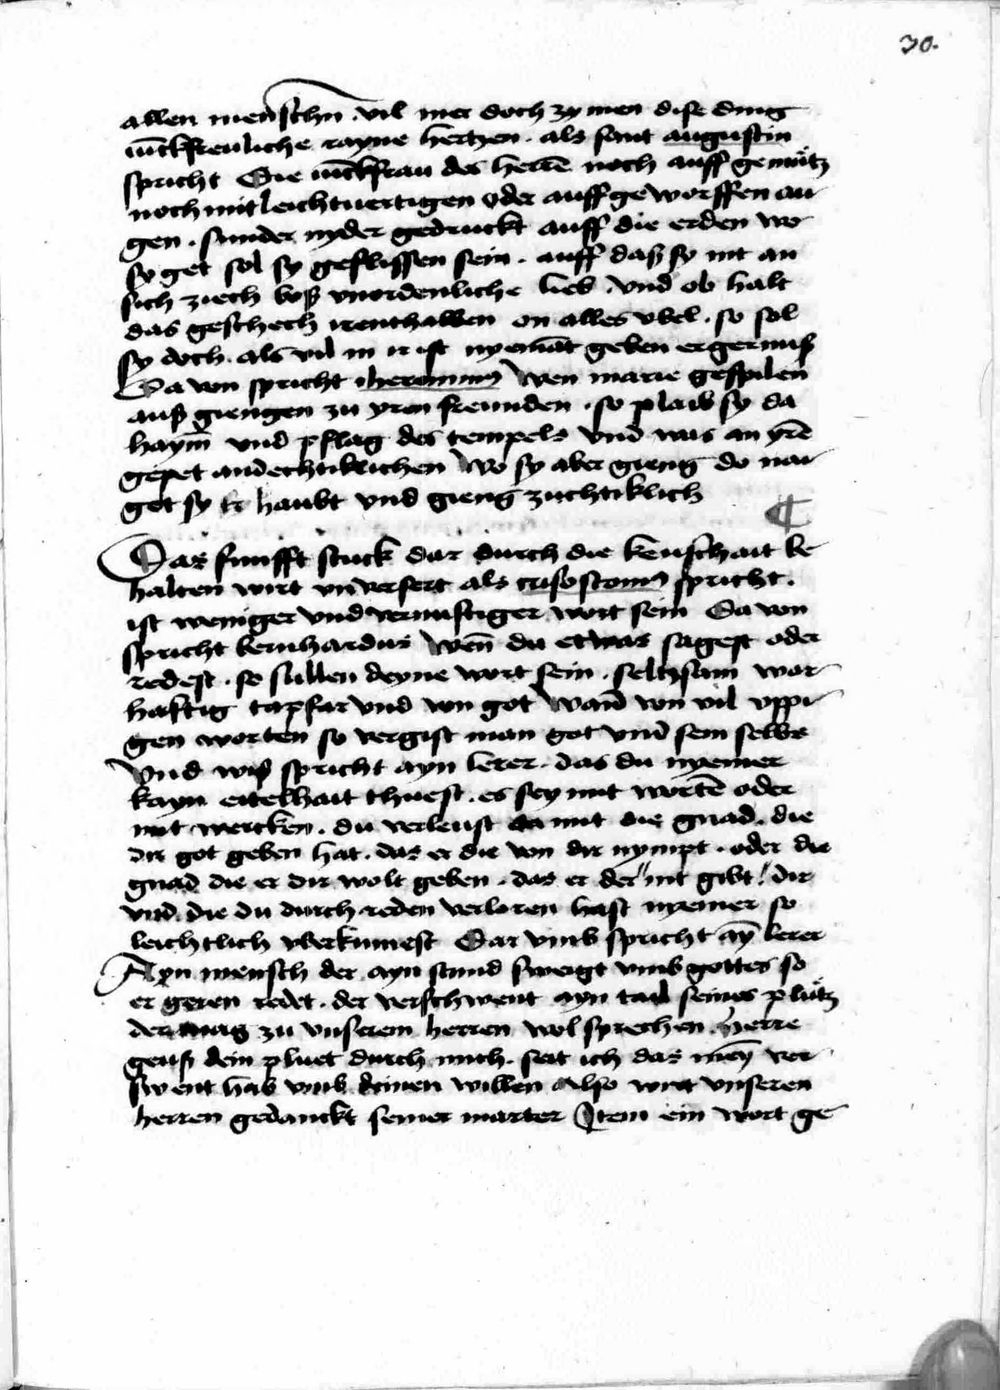 30.
allen menschn . vil mer doch zymen dise ding
iūckfreuliche rayne hertzen . als sant augustin
spricht Die iūckfrau des herrē noch auff gemütz
noch mit leichtuertigen oder auff geworffen au
gen . sunder nyder gedruckt auff die erden wo
sy get sol sy geflissen sein . auff daß sy nit an
sich ziech böß vnordenliche lieb . Vnd ob halt
das geschech irenthalben on alles vbel . so sol
sy doch als vil in ir ist nyemāt geben ergernuß
Da von spricht iheronimus Wen marie gespilen
auß giengen zu yren freunden . so plaib sy da
haym̄ vnd pflag des tempels vnd was an yrē
gepet andechtiklichen Wo sy aber gieng do nai
get sy ir haubt vnd gieng zuchtiklich
¶
Das funfft stuck dar durch die keuschait be
halten wirt vn verfert als crisostomus spricht .
ist weniger vnd vernuftiger wort sein Da von
spricht bernhardus Wen̄ du etwas sagest oder
redest . so sullen deyne wort sein . seltzsam war
haftig tapfar vnd von got Wan̄ von vil vppi
gen worten so vergist man got vnd sein selbs
Vnd wiß spricht ayn lerer . das du nyemer
kayn eitelhait thuest . es sey mit wortē oder
mit wercken . du verleust da mit die gnad . die
dir got geben hat . das er die von dir nympt . oder die
gnad die er dir wolt geben . das er der nit gibt dir
vnd die du durch reden verloren hast nyemer so
leichtlich vberkumest Dar vmb spricht aȳ lerer
Ayn mensch der ayn stund sweigt vmb gottes so
er geren redet . der verschwent ayn tail seines plutz
der mag zu vnserem herren wol sprechen . Herre
geuß dein pluet durch mich . seit ich das meȳ ver
swent hab vmb deinen willen Also wirt vnseren
herren gedanckt seiner marter Item ein wort ge